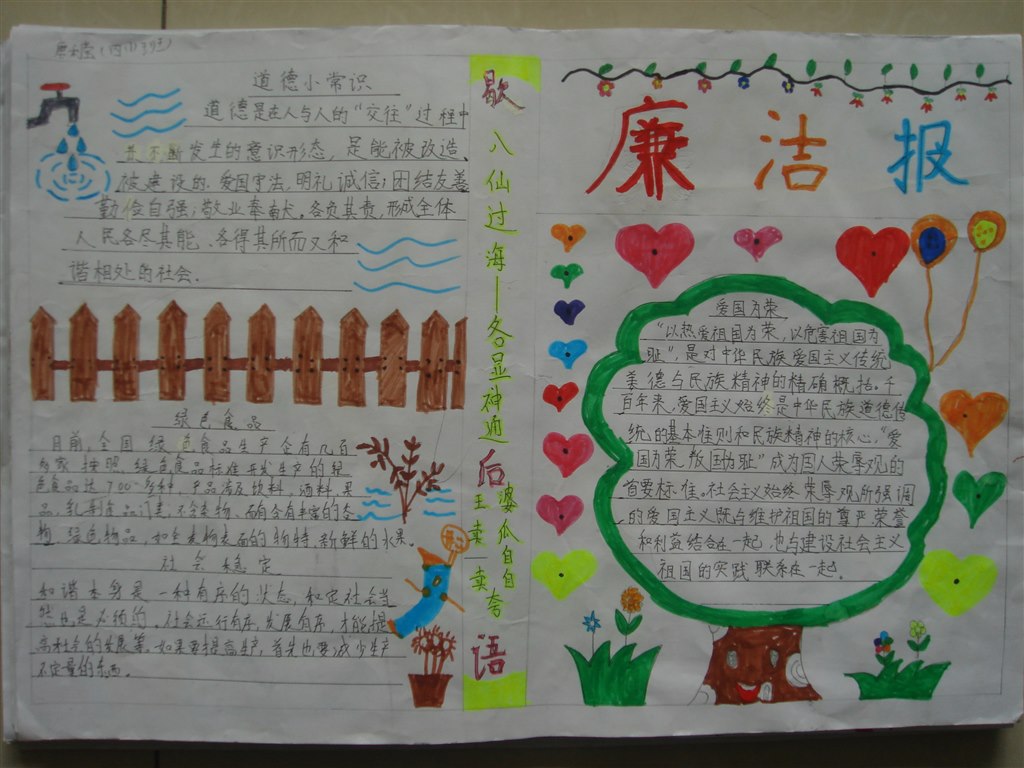 道德小常识
道德是在人与人的“交往”过程中
并不断发生的意识形态，是能被改造、
被建设的.爱国守法,明礼诚信;团结友善
勤俭自强;敬业奉献.各负其责.形成全体
人民各尽其能.各得其所而又和
谐相处的社会.
绿色食品
目前,全国绿色食品生产企有几百
多家.按照绿色食品标准开发生产的绿
色食品达700多种,产品涉及饮料,酒料,果
品,乳制食品门类
绿色物品 新鲜的水果。
社会稳定
和谐本身是一种有序的状态,和定社会当
然也是必须的.社会运行有序.发展有序,才能提
高社会的发展等.如果要提高生产,首先也要减少生产
不定量的东西。
歇后语
八仙过海——各显神通
王婆卖瓜自卖自夸
廉洁报
爱国为荣
“以热爱祖国为荣，以危害祖国为
耻”,是对中华民族爱国主义传统
美德与民族精神的精确概括。千
百年来,爱国主义始终是中华民族道德传
统的基本准则和民族精神的核心,“爱
国为荣,叛国为耻”成为国人荣辱观的
首要标准。社会主义始终荣辱观所强调
的爱国主义既与维护祖国的尊严荣誉
和利益结合在一起,也与建设社会主义
祖国的实践联系在一起。